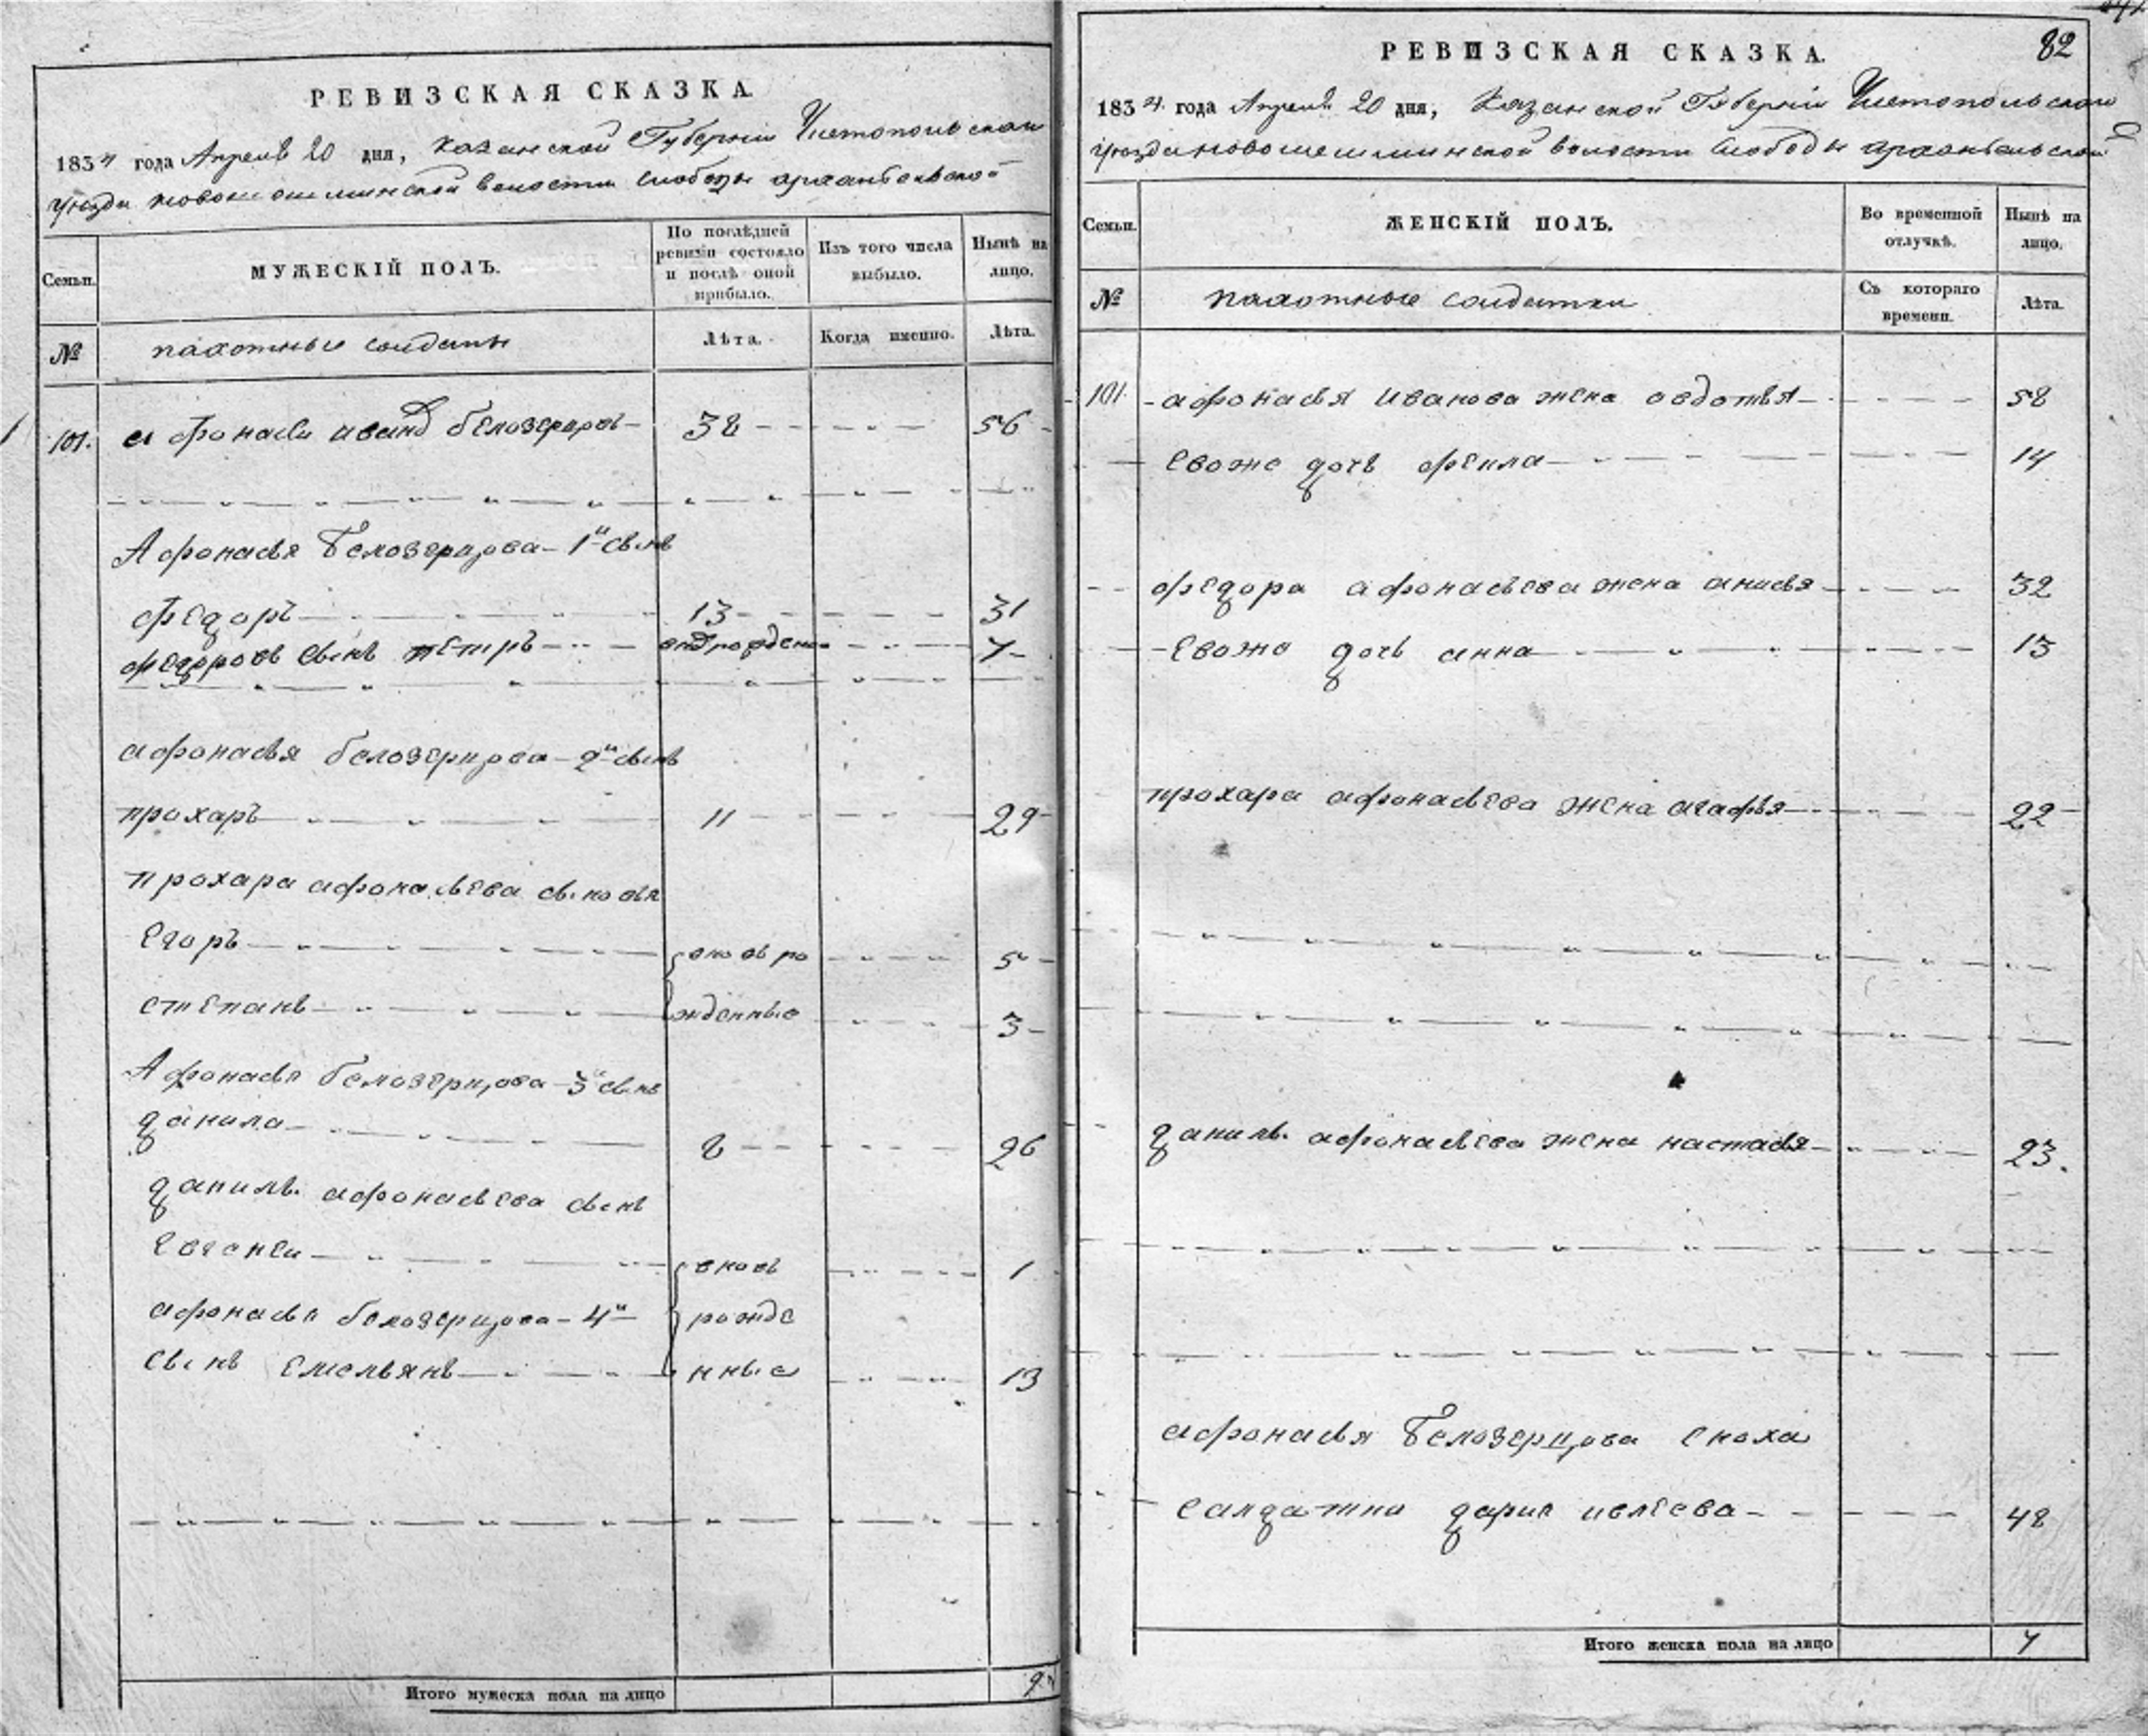 РЕВИЗСКАЯ СКАЗКА.
1834 года Апреля 20 дня, Казанской Губернiи Чистопольскаго
Уезда новошешминской волости слободы архангельской
Семьи. МУЖЕСКІЙ ПОЛЪ. По послѣдней ревизіи состояло и послѣ оной прибыло. Изъ того числа выбыло. Нынѣ на лицо.
№ пахотные солдаты Лѣта. Когда именно. Лѣта.
101. афонасей иванъ белозерцовъ 38 56
Афонасья Белозерцова 1й сынъ
федоръ 13 31
федоровъ сынъ петръ внов рожден 7
афонасья белозерцова 2й сынъ
прохаръ 11 29
прохара афонасьева сыновья
Егоръ вновь ро 5
степанъ жденные 3
Афонасья белозерцова 3й сынъ
данила 8 26
данилы афонасьева сынъ
Евгеней вновь 1
афонасья белозерцова 4й рожде
сынъ емельянъ нные 13
Итого мужеска пола на лицо 9
82
РЕВИЗСКАЯ СКАЗКА.
1834 года Апреля 20 дня, Казанской Губернiи Чистопольскаго
Уезда новошешминской волости слободы архангельской
Семьи. ЖЕНСКІЙ ПОЛЪ. Во временной отлучкѣ. Нынѣ на лицо.
№ пахотные солдатки Съ котораго времени. Лѣта.
101 афонасья иванова жена овдотья 58
Евоже дочь фекла 14
федора афонасьева жена анисья 32
Евоже дочь анна 13
прохара афонасьева жена агафья 22
данилы афонасьева жена настасья 23.
афонасья Белозерцова сноха
салдатка дарья 48
Итого женска пола на лицо 7